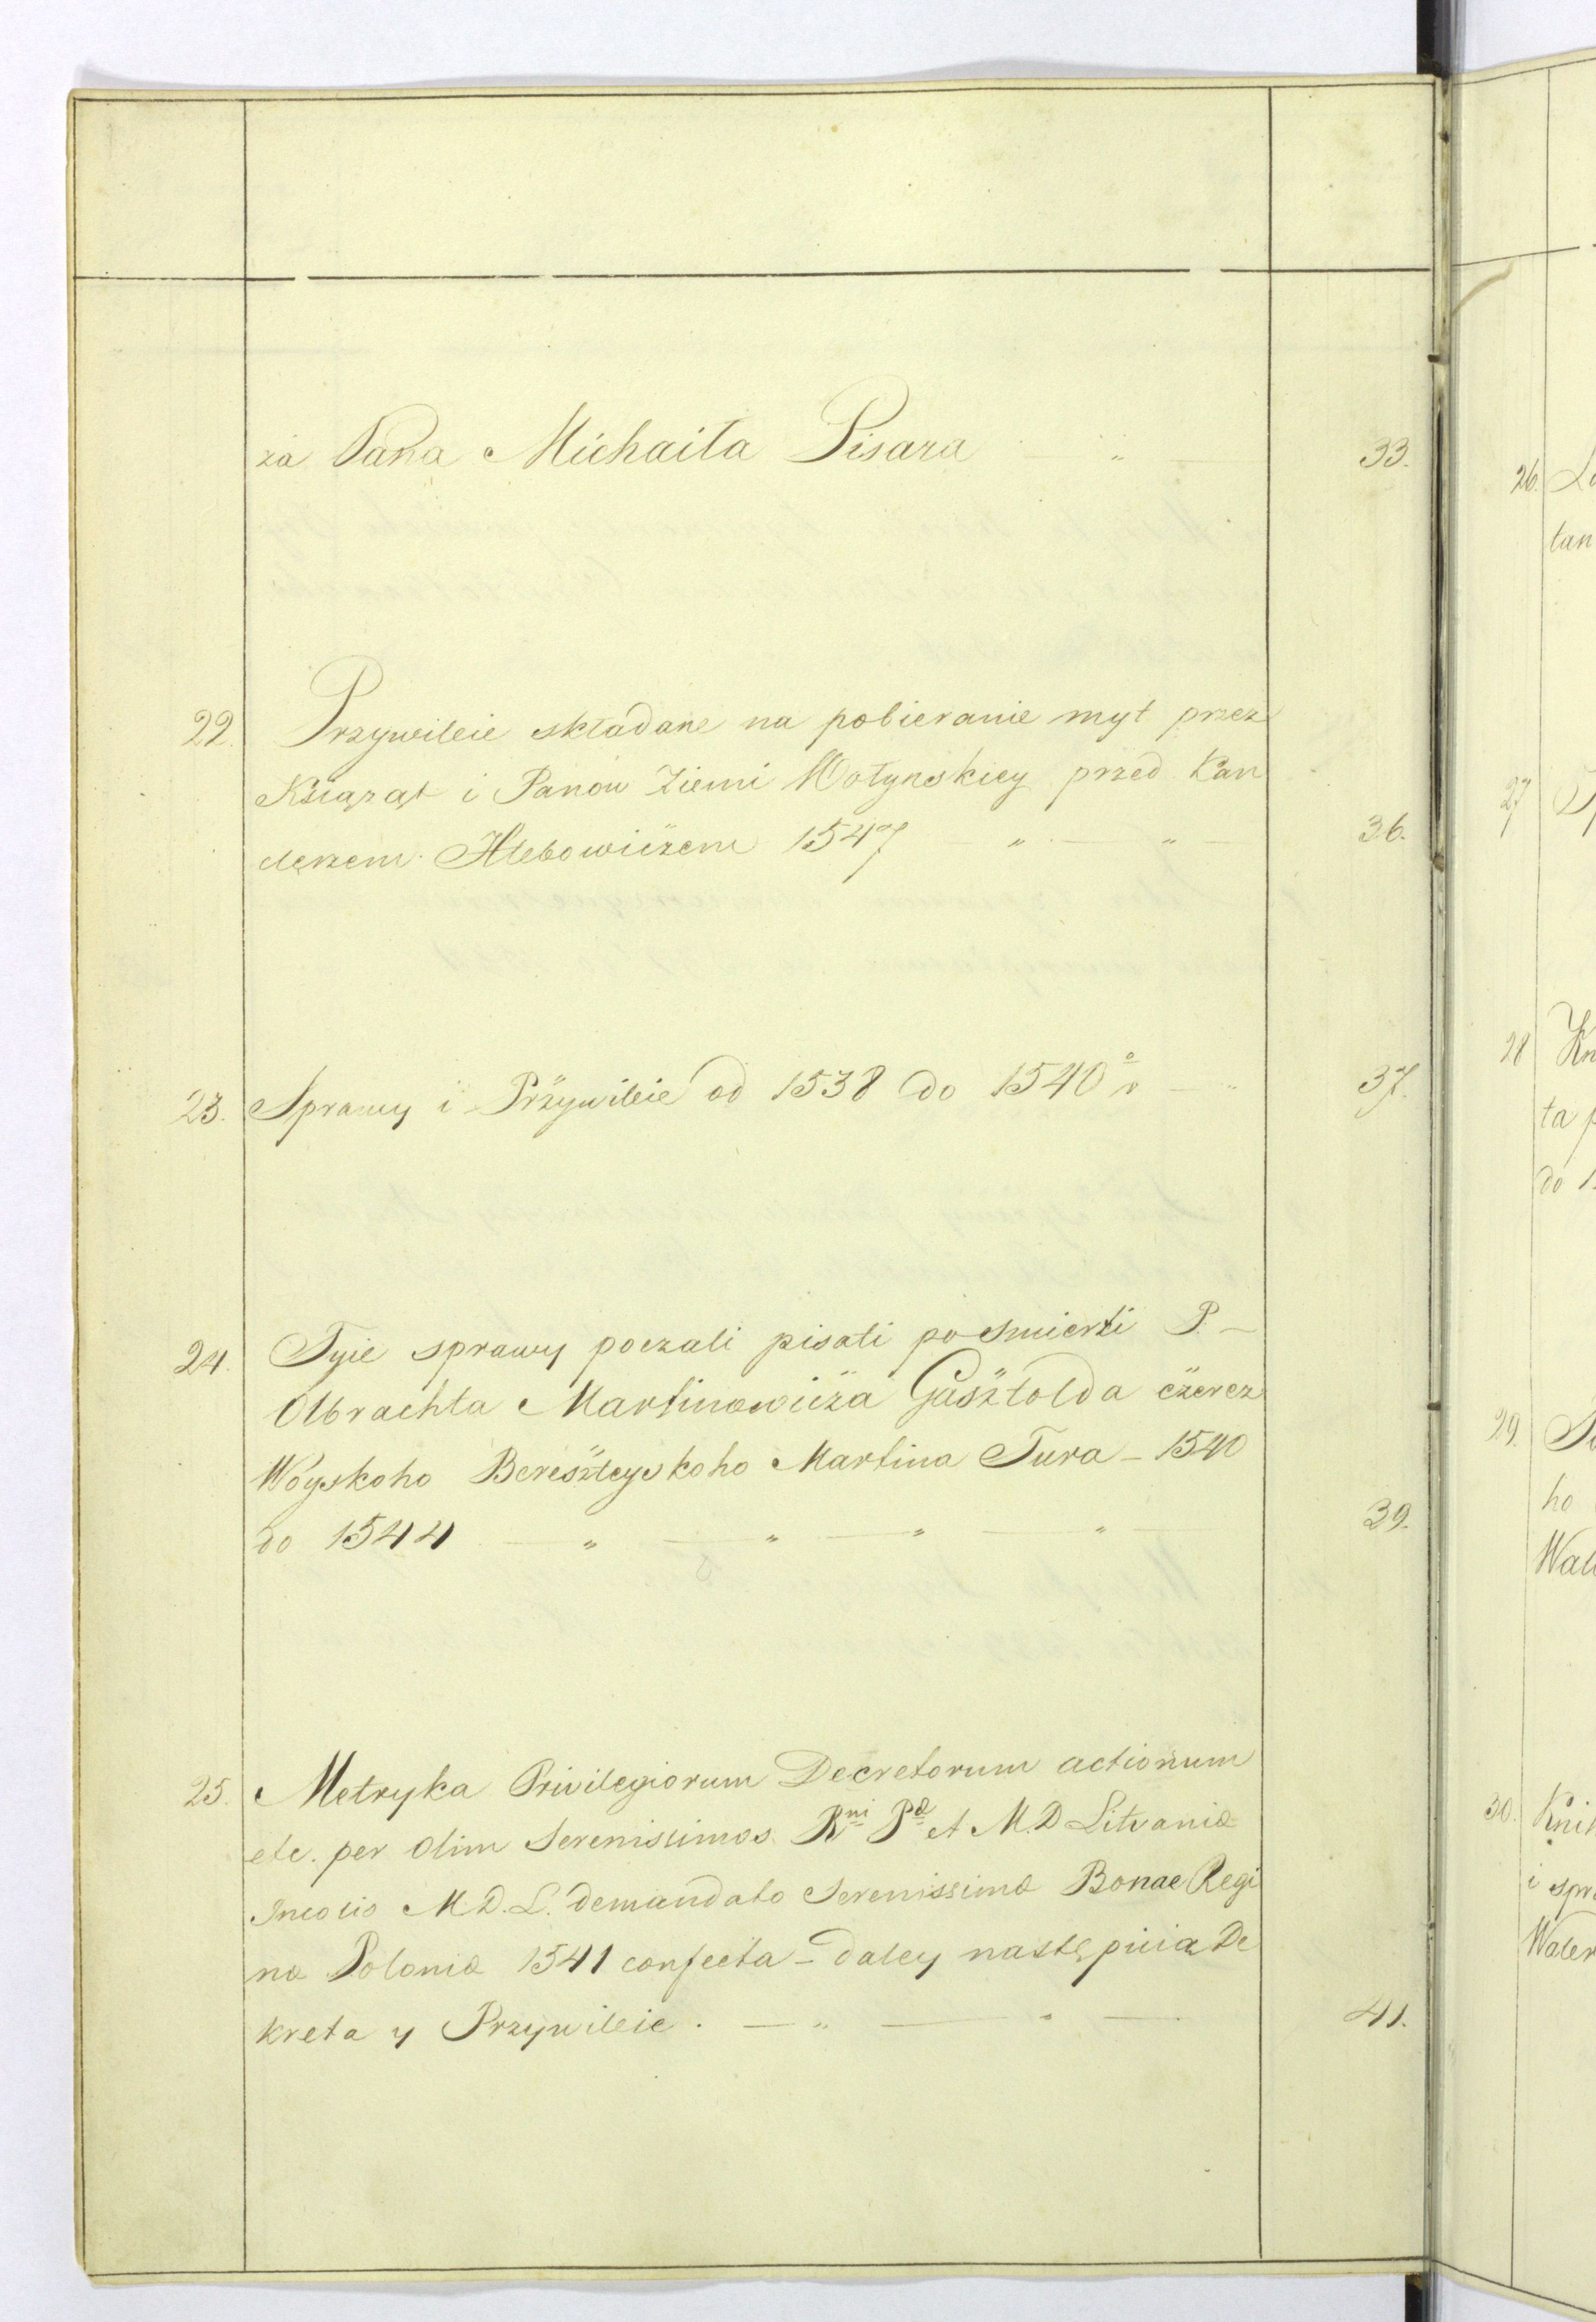 za Pana Michaiła Pisara " — 33.
22. Przywileie składane na pobieranie myt przez
Xsiążąt i Panow Ziemi Wołynskiey przed Kan
clerzem Hlebowiczem 1547 " — " — 36.
23. Sprawy i Przywileie od 1538 do 1540 — " 37.
24. Tyie sprawy poczali pisati po Smierti P. —
Olbrachta Martinowicza Gasztolda czerez
Woyskoho Beresteyskoho Martina Tura — 1540
do 1544 — " — " — " — " 39.
25. Metryka Privilegiorum Decretorum actionum
etc. per olim Serenissimos Rni Pæ et M.D Litvaniæ
Incolis M.D.L. demandato Serenissimæ Bonae Regi
næ Poloniæ 1541 confecta — daley nastę puia De
kreta y Przywileie. — " — " — 41.
26. Lo
tan
27 Sp
28 Kn
ta p
do 1
29.
ho
Wal
30. Knih
i spra
Waler